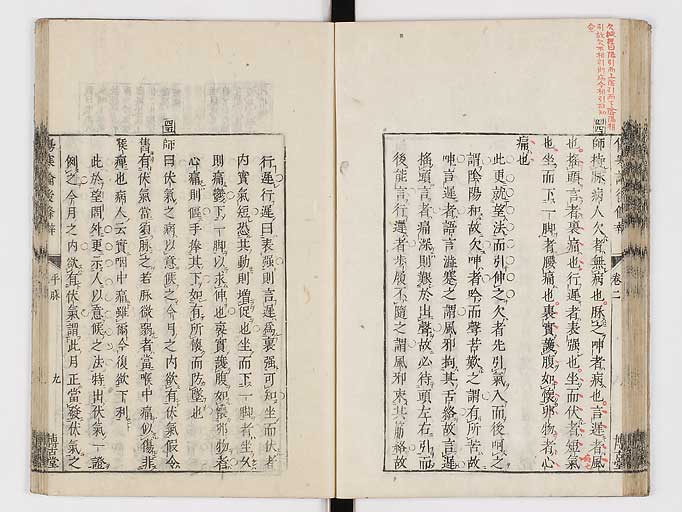 師持脉病人欠者無病也脉之呻者病也言遲者風
也搖頭言者裏痛也行遲者表强也坐而伏者短氣
也坐而下一脚者腰痛也裏實護腹如懷卵物者心
痛也
此更就望法而引伸之欠者先引氣入而後呵之
謂陰陽和故欠呻者吟而聲苦歎之謂有所苦故
呻言遲者語言濇蹇之謂風邪拘其舌絡故言遲
搖頭言者痛深則艱於出聲故必待頭左右引而
後能言行遲者步履不隨之謂風邪束其筋絡故
傷寒論後條辨
卷二
博古堂
行遲行遲曰表强則言遲爲裏强可知坐而伏者
内實氣短恐其動則增促也坐而下一脚者坐久
則痛鬱下一脚以求伸也裏實護腹如懷卵物者
心痛則侧手捧其下如有所懷而防墜也
師曰伏氣之病以意候之今月之内欲有伏氣假令
舊有伏氣當須脉之若脉微弱者當喉中痛似傷非
喉痺也病人云實咽中痛雖爾今復欲下利
此於望問外更示人以意候之法特出伏氣一證
例之今月之内欲有伏氣謂此月正當發伏氣之
傷寒論後條辨
平脉
九
博古堂